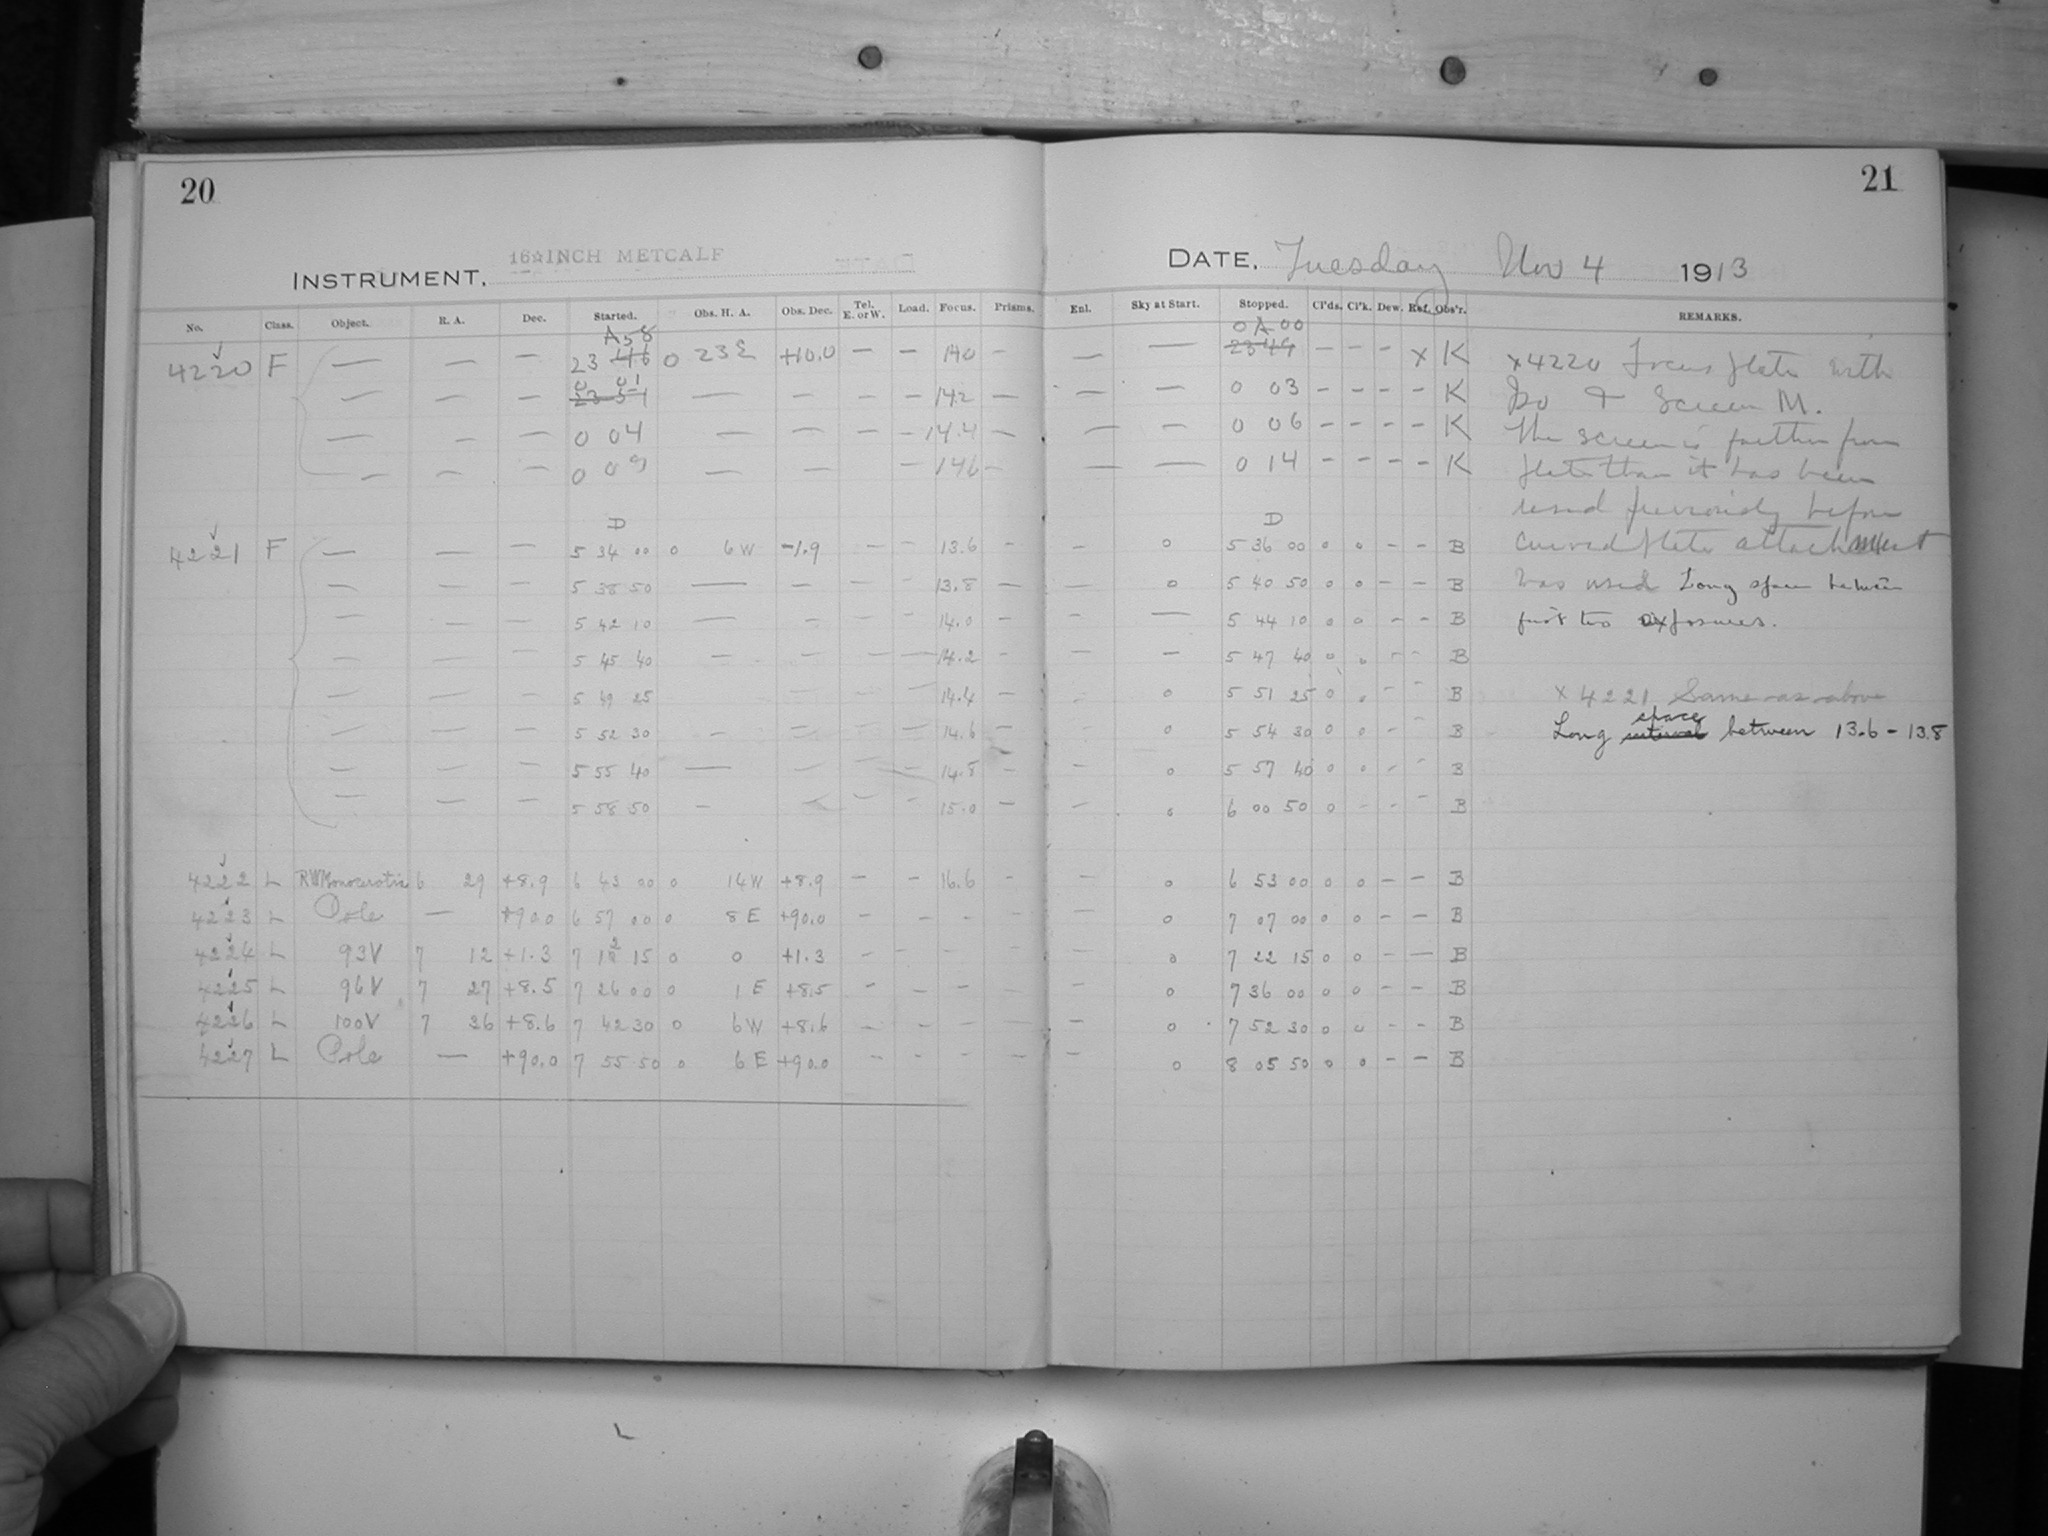 20
21
16 INCH METCALF
INSTRUMENT.
DATE. Tuesday Nov 4 1913
No. Class. Object. R. A. Dec. Started. Obs. H. A. Obs. Dec. Tel. E. or W. Load. Focus. Prisms. Enl. Sky at Start. Stopped. Cl'ds. Cl'k. Dew. Ref. Obs'r. REMARKS.
A 58 0 A 00
4220 F — — — 23 46 0 23 E +10.0 — — 14.0 — — — 23 49 — — — x K x4220 Focus plate with
0 01
— — — 23 51 — — — — 14.2 — — — 0 03 — — — — K Iso & Screen M.
— — — 0 04 — — — — 14.4 — — — 0 06 — — — — K The screen is farther from
— — — 0 09 — — — 14.6 — — — 0 14 — — — — K plate than it has been
used previously before
D D
4221 F — — — 5 34 00 0 6 W -1.9 — — 13.6 — — 0 5 36 00 0 0 — — B curved plate attachment
— — — 5 38 50 — — — — 13.8 — — 0 5 40 50 0 0 — — B was used Long space between
— — — 5 42 10 — — — — 14.0 — — — 5 44 10 0 0 — — B first two exposures.
— — — 5 45 40 — — — — 14.2 — — — 5 47 40 0 0 — — B
— — — 5 49 25 — — — 14.4 — — 0 5 51 25 0 0 — — B x 4221 Same as above
— — — 5 52 30 — — — — 14.6 — — 0 5 54 30 0 0 — — B Long interval space between 13.6 - 13.8
— — — 5 55 40 — — — — 14.8 — — 0 5 57 40 0 0 — — B
— — — 5 58 50 — — — — 15.0 — — 0 6 00 50 0 — — — B
4222 L RW Monocerotis 6 29 +8.9 6 43 00 0 14 W +8.9 — — 16.6 — — 0 6 53 00 0 0 — — B
4223 L Pole — +90.0 6 57 00 0 8 E +90.0 — — — — — 0 7 07 00 0 0 — — B
4224 L 93V 7 12 +1.3 7 12 15 0 0 +1.3 — — — — — 0 7 22 15 0 0 — — B
4225 L 96V 7 27 +8.5 7 26 00 0 1 E +8.5 — — — — — 0 7 36 00 0 0 — — B
4226 L 100V 7 36 +8.6 7 42 30 0 6 W +8.6 — — — — — 0 7 52 30 0 0 — — B
4227 L Pole — +90.0 7 55 50 0 6 E +90.0 — — — — — 0 8 05 50 0 0 — — B